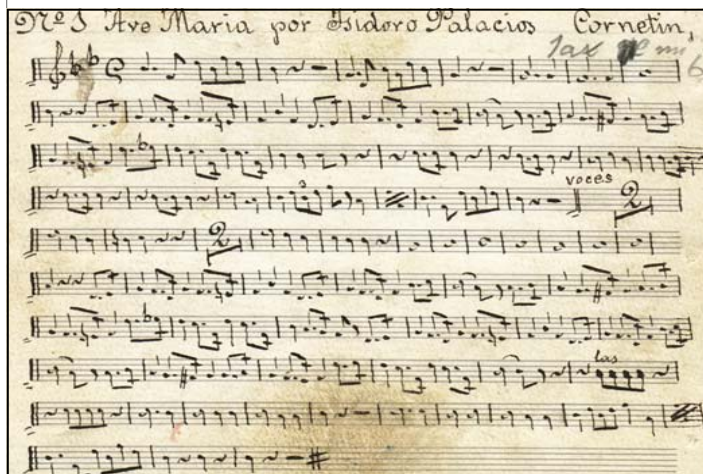 Nº 1 Ave Maria por Isidoro Palacios Cornetin,
3
voces
2
2
las